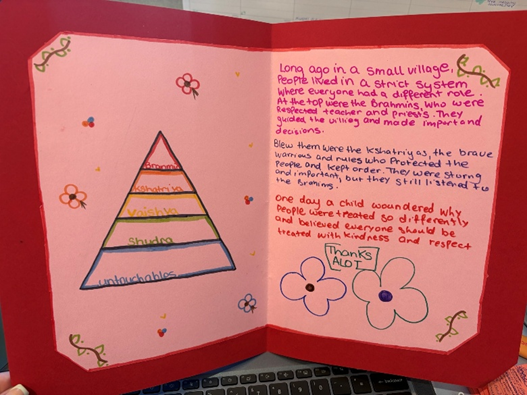 Brahmin
kshatriya
vaishya
shudra
untouchables
Long ago in a small village,
People lived in a strict system
where everyone had a different role.
At the top were the Brahmins, who were
Respected teacher and priests. They
guided the villieg and made importand
decisions.
Blew them were the Kshatriyas, the brave
warrious and rules who Protected the
People and kept order. They were sturng
and important, but they still listened to
the Brahmins.
One day a child woundered why
People were treated so differently
and believed everyone should be
treated with kindness and respect
Thanks
ALOT